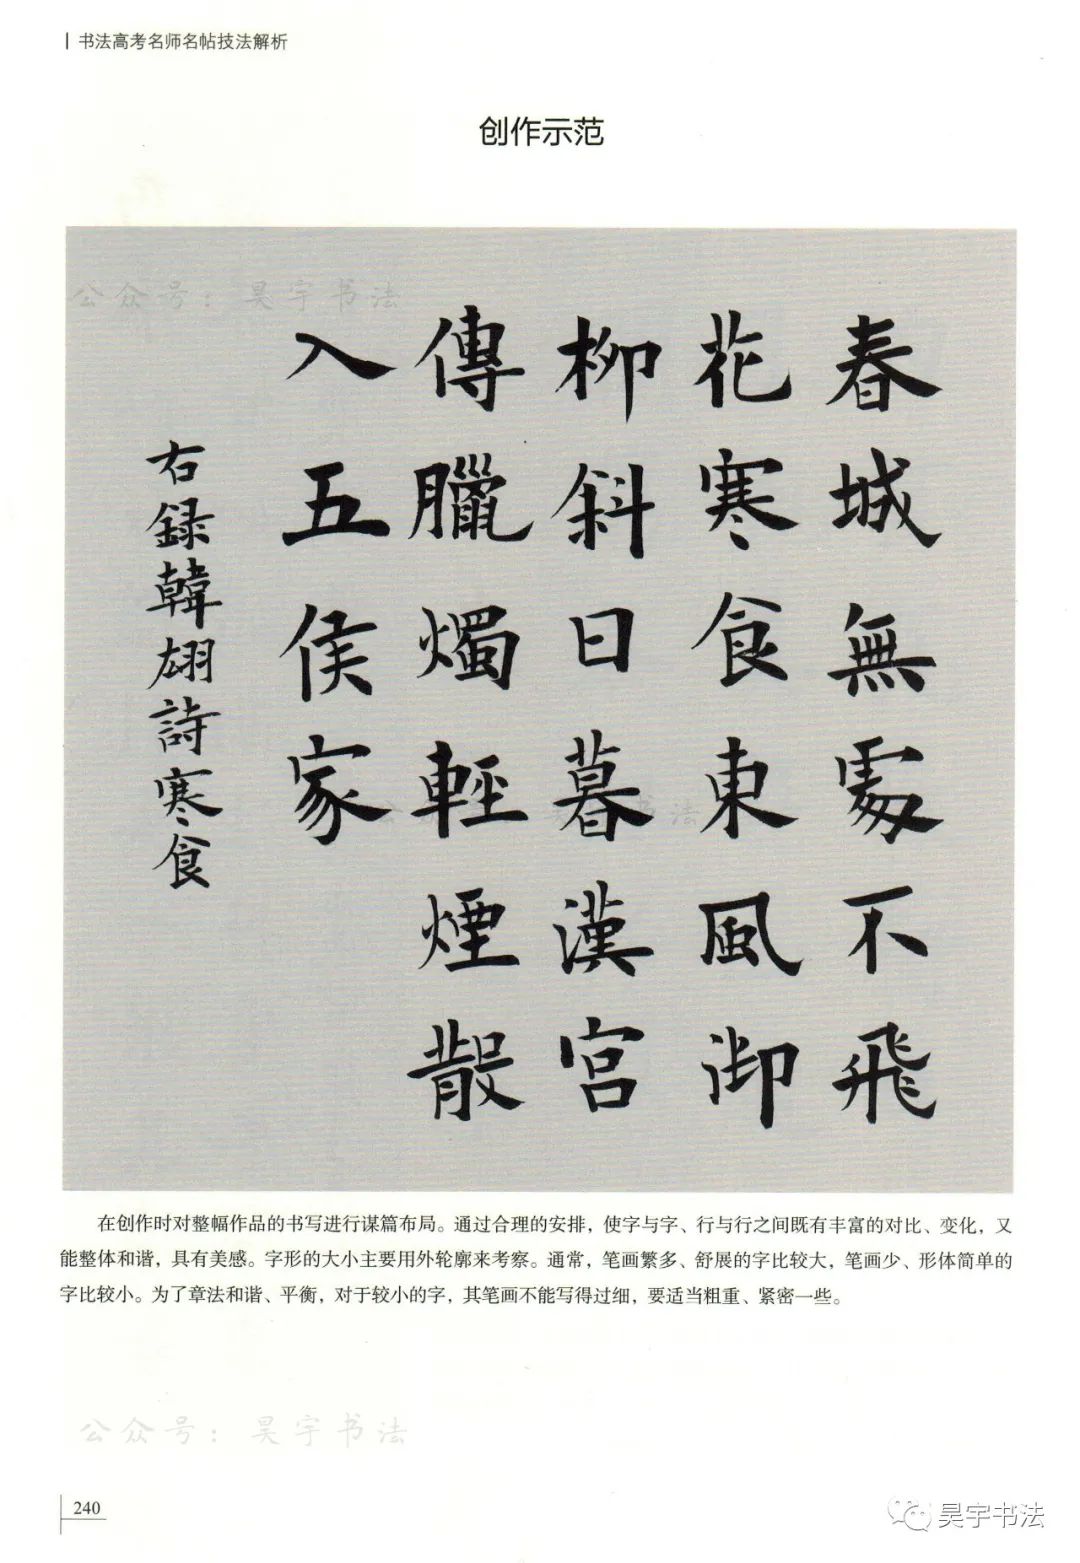 书法高考名师名帖技法解析
创作示范
公众号：昊宇书法
春城無處不飛
花寒食東風御
柳斜日暮漢宮
傳臘燭輕煙散
入五侯家
右録韓翃詩寒食
书法
在创作时对整幅作品的书写进行谋篇布局。通过合理的安排，使字与字、行与行之间既有丰富的对比、变化，又
能整体和谐，具有美感。字形的大小主要用外轮廓来考察。通常，笔画繁多、舒展的字比较大，笔画少、形体简单的
字比较小。为了章法和谐、平衡，对于较小的字，其笔画不能写得过细，要适当粗重、紧密一些。
公众号：昊宇书法
240
昊宇书法